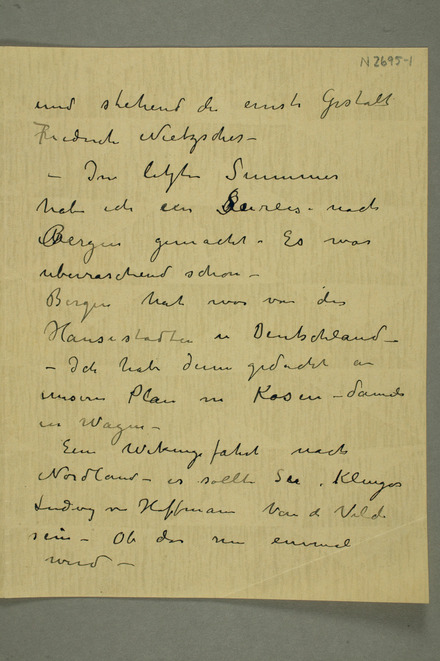 N 2695-1
und stehend die ernste Gestalt
Friedrich Nietzsches –
– Im letzten Summer
habe ich eine reis nach
Bergen gemacht – Es war
uberraschend schon –
Bergen hat was von die
Hansestädten in Deutschland –
– Ich habe denn gedacht an
unseren Plan in Kosen – damals
im Wagen –
Eine Wikingsfahrt nach
Nordland – es sollte Sie, Klinger
Ludwig von Hoffmann Van de Velde
sein – Ob das nun einmal
wird –